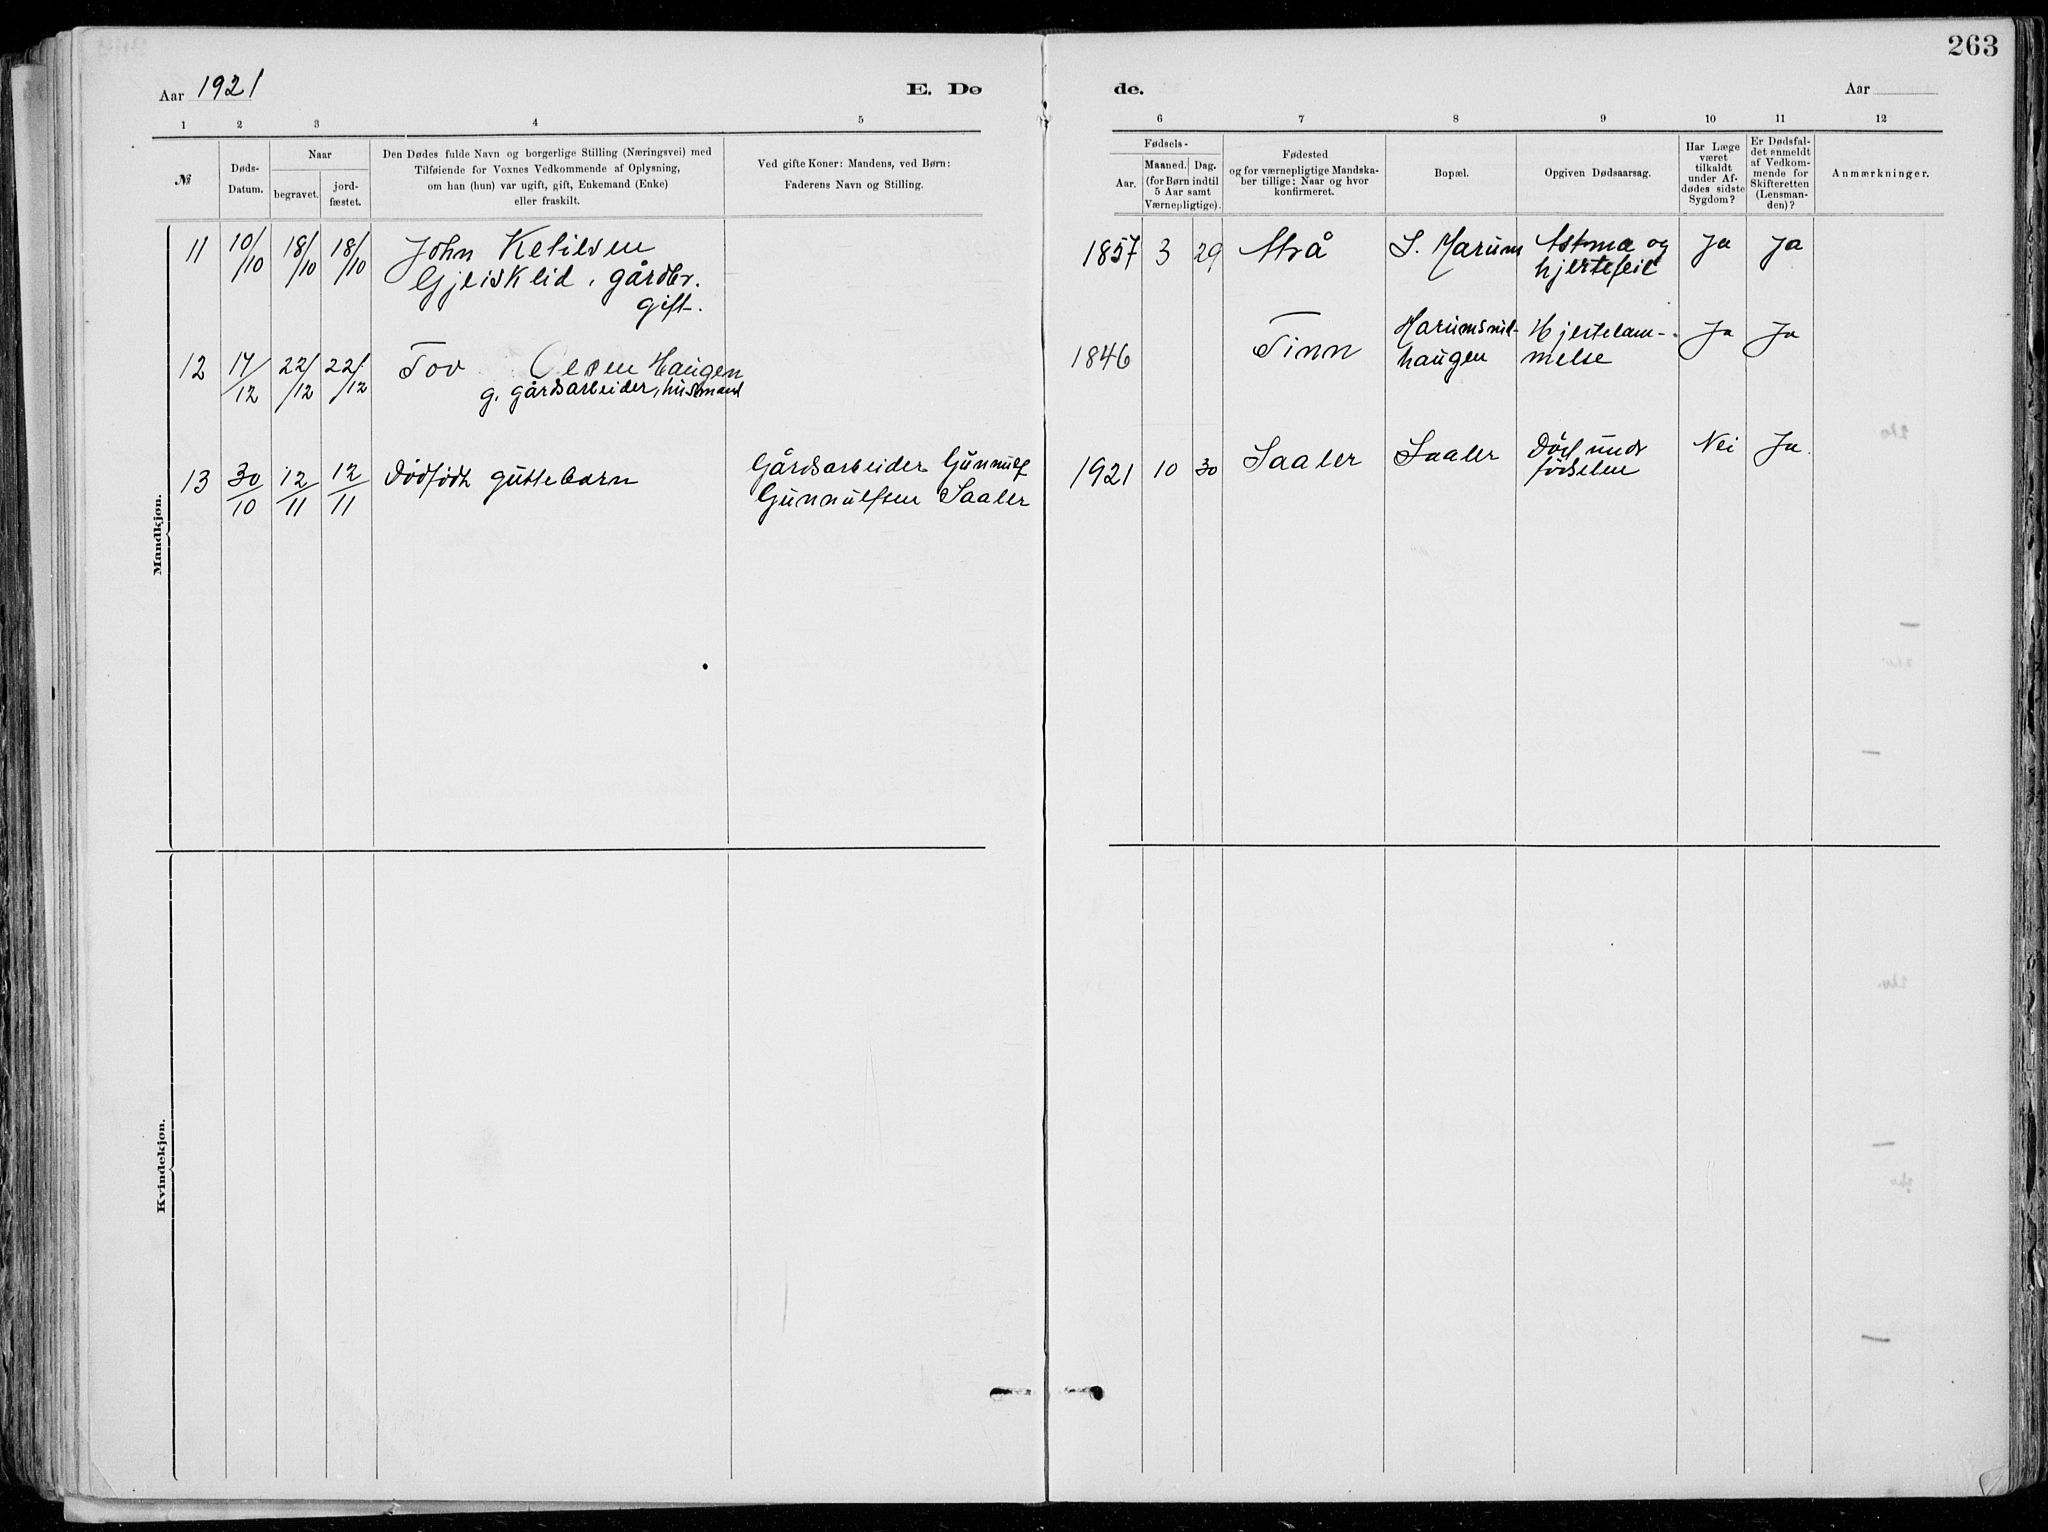 263
Aar 1921
E. Dø
de.
Aar
1 2 3 4 5
6 7 8 9 10 11 12
№
Døds-
Datum.
Naar
begravet.
jord-
fæstet.
Den Dødes fulde Navn og borgerlige Stilling (Næringsvei) med
Tilføiende for Voxnes Vedkommende af Oplysning,
om han (hun) var ugift, gift, Enkemand (Enke)
eller fraskilt.
Ved gifte Koner: Mandens, ved Børn:
Faderens Navn og Stilling.
Fødsels-
Aar.
Maaned. Dag.
(for Børn indtil
5 Aar samt
Værnepligtige).
Fødested
og for værnepligtige Mandska-
ber tillige: Naar og hvor
konfirmeret.
Bopæl.
Opgiven Dødsaarsag.
Har Læge
været
tilkaldt
under Af-
dødes sidste
Sygdom?
Er Dødsfal-
det anmeldt
af Vedkom-
mende for
Skifteretten
(Lensman-
den)?
Anmærkninger.
Mandkjøn.
11 10/10 18/10 18/10 John Ketilsen
Gjeisklid, gårdbr.
gift.
1857 3 29 Atrå S. Marum Astma og
hjertefeil
Ja Ja
12 17/12 22/12 22/12 Tov Olsen Haugen
g. gårdsarbeider, husmand
1846 Tinn
haugen
Hjertelam-
melse
Ja Ja
13 30/10 12/11 12/11 Dødfødt guttebarn
Gårdsarbeider Gunnulf
Gunnulfsen Saaler
1921 10 30 Saaler Saaler Død und
fødselen
Nei Ja.
Kvindekjøn.